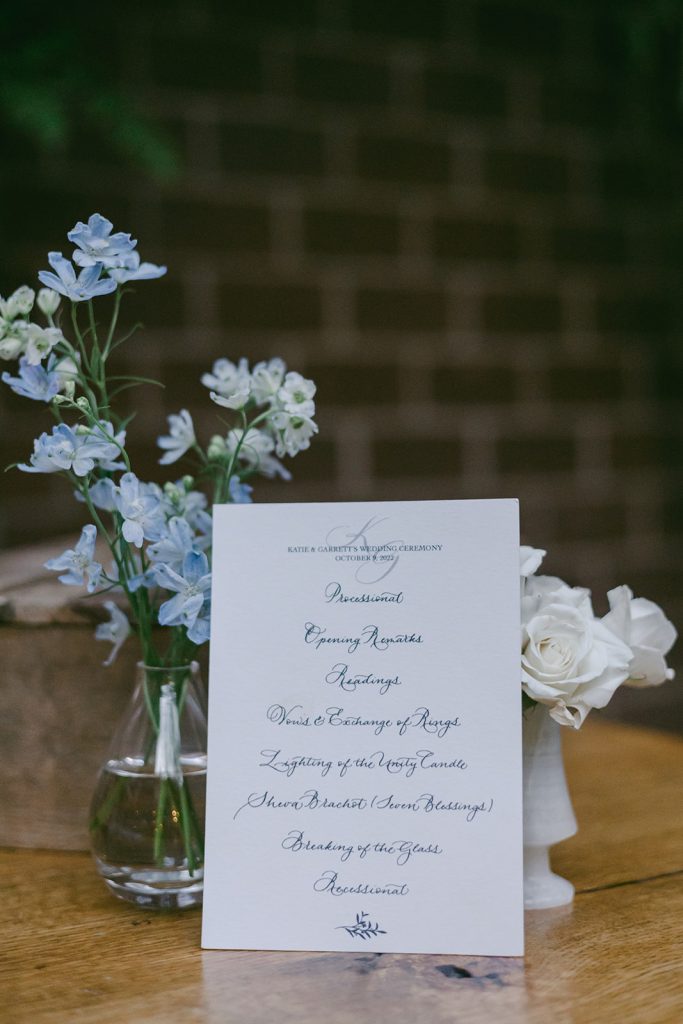 KG
KATIE & GARRETT'S WEDDING CEREMONY
OCTOBER 9, 2022
Processional
Opening Remarks
Readings
Vows & Exchange of Rings
Lighting of the Unity Candle
Sheva Brachot (Seven Blessings)
Breaking of the Glass
Recessional